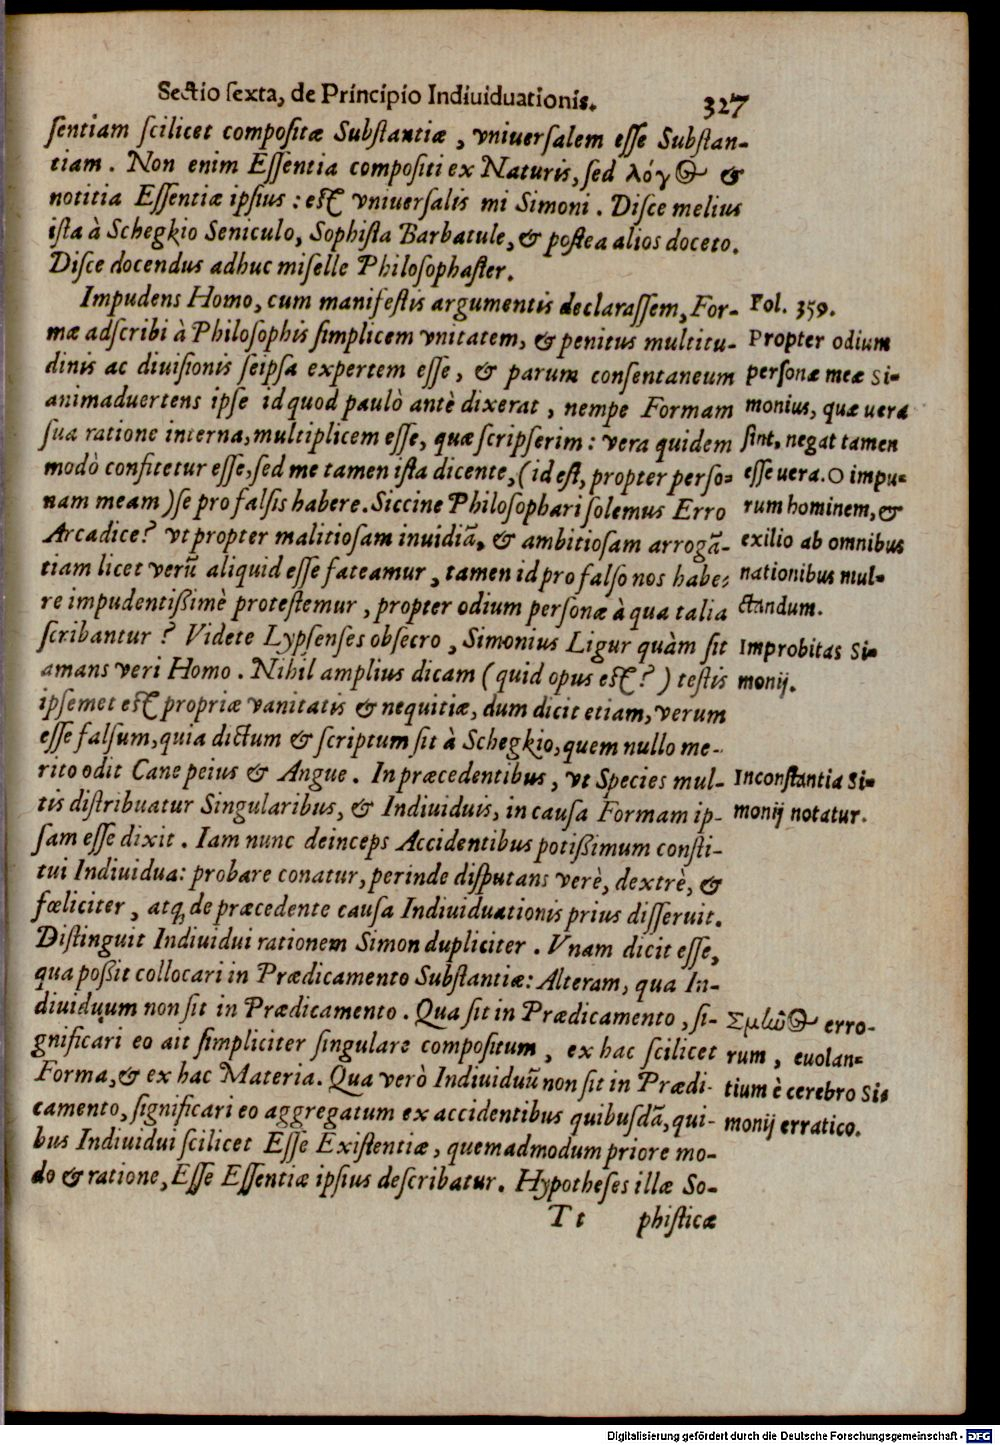 Sectio sexta, de Principio Indiuiduationis. 327
sentiam scilicet compositæ Substantiæ, vniuersalem esse Substan-
tiam. Non enim Essentia compositi ex Naturis, sed λόγος &
notitia Essentiæ ipsius: est vniuersalis mi Simoni. Disce melius
ista à Schegkio Seniculo, Sophista Barbatule, & postea alios doceto.
Disce docendus adhuc miselle Philosophaster.
Impudens Homo, cum manifestis argumentis declarassem, For-
mæ adscribi à Philosophis simplicem vnitatem, & penitus multitu-
dinis ac diuisionis seipsa expertem esse, & parum consentaneum
animaduertens ipse id quod paulò antè dixerat, nempe Formam
sua ratione interna, multiplicem esse, quæ scripserim: vera quidem
modò confitetur esse, sed me tamen ista dicente, (id est, propter perso-
nam meam) se pro falsis habere. Siccine Philosophari solemus Erro
Arcadice? vt propter malitiosam inuidiã, & ambitiosam arrogã-
tiam licet verũ aliquid esse fateamur, tamen id pro falso nos habe-
re impudentißimè protestemur, propter odium personæ à qua talia
scribantur? Videte Lypsenses obsecro, Simonius Ligur quàm sit
amans veri Homo. Nihil amplius dicam (quid opus est?) testis
ipsemet est propriæ vanitatis & nequitiæ, dum dicit etiam, verum
esse falsum, quia dictum & scriptum sit à Schegkio, quem nullo me-
rito odit Cane peius & Angue. In præcedentibus, vt Species mul-
tis distribuatur Singularibus, & Indiuiduis, in causa Formam ip-
sam esse dixit. Iam nunc deinceps Accidentibus potißimum consti-
tui Indiuidua: probare conatur, perinde disputans verè, dextrè, &
fœliciter, atq; de præcedente causa Indiuiduationis prius disseruit.
Distinguit Indiuidui rationem Simon dupliciter. Vnam dicit esse,
qua poßit collocari in Prædicamento Substantiæ: Alteram, qua In-
diuiduum non sit in Prædicamento. Qua sit in Prædicamento, si-
gnificari eo ait simpliciter singulare compositum, ex hac scilicet
Forma, & ex hac Materia. Qua verò Indiuiduũ non sit in Prædi-
camento, significari eo aggregatum ex accidentibus quibusdã, qui-
bus Indiuidui scilicet Esse Existentiæ, quemadmodum priore mo-
do & ratione, Esse Essentiæ ipsius describatur. Hypotheses illæ So-
Tt phisticæ
Fol. 359.
Propter odium
personæ meæ Si-
monius, quæ uera
sint, negat tamen
esse uera. O impu-
rum hominem, &
exilio ab omnibus
nationibus mul-
ctandum.
Improbitas Si-
monij.
Inconstantia Si-
monij notatur.
erro-
rum, euolan-
tium è cerebro Si-
monij erratico.
Digitalisierung gefördert durch die Deutsche Forschungsgemeinschaft - DFG